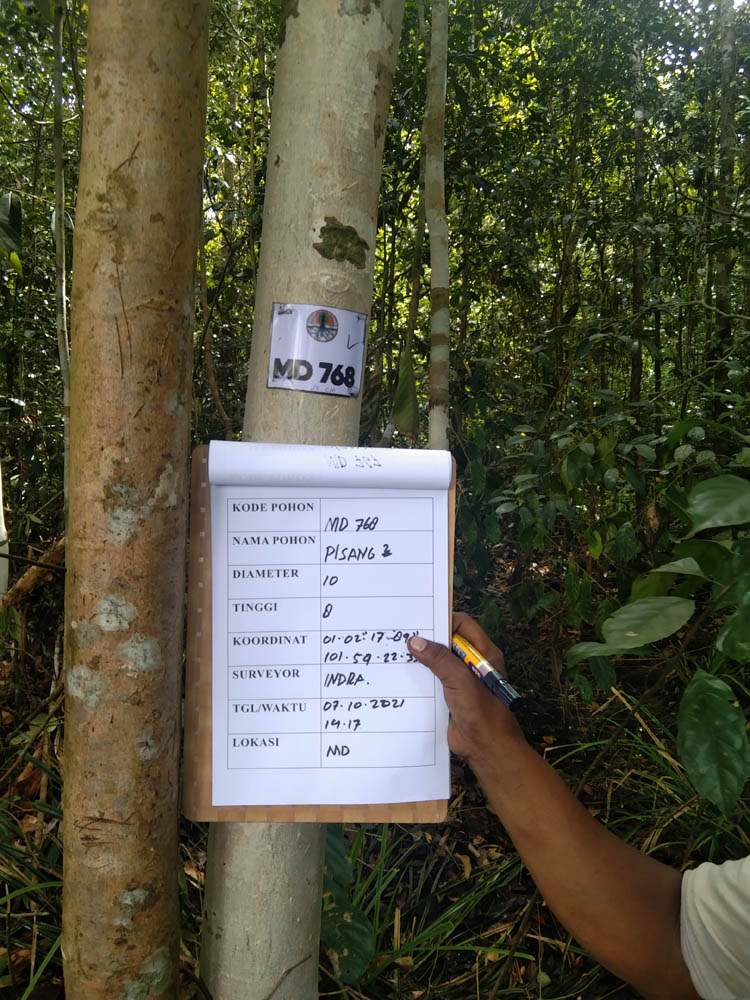 MD 768
KODE POHON MD 768
NAMA POHON PISANG 2
DIAMETER 10
TINGGI 8
KOORDINAT 01.02.17
101.59.22
SURVEYOR INDRA.
TGL/WAKTU 07.10.2021
14.17
LOKASI MD